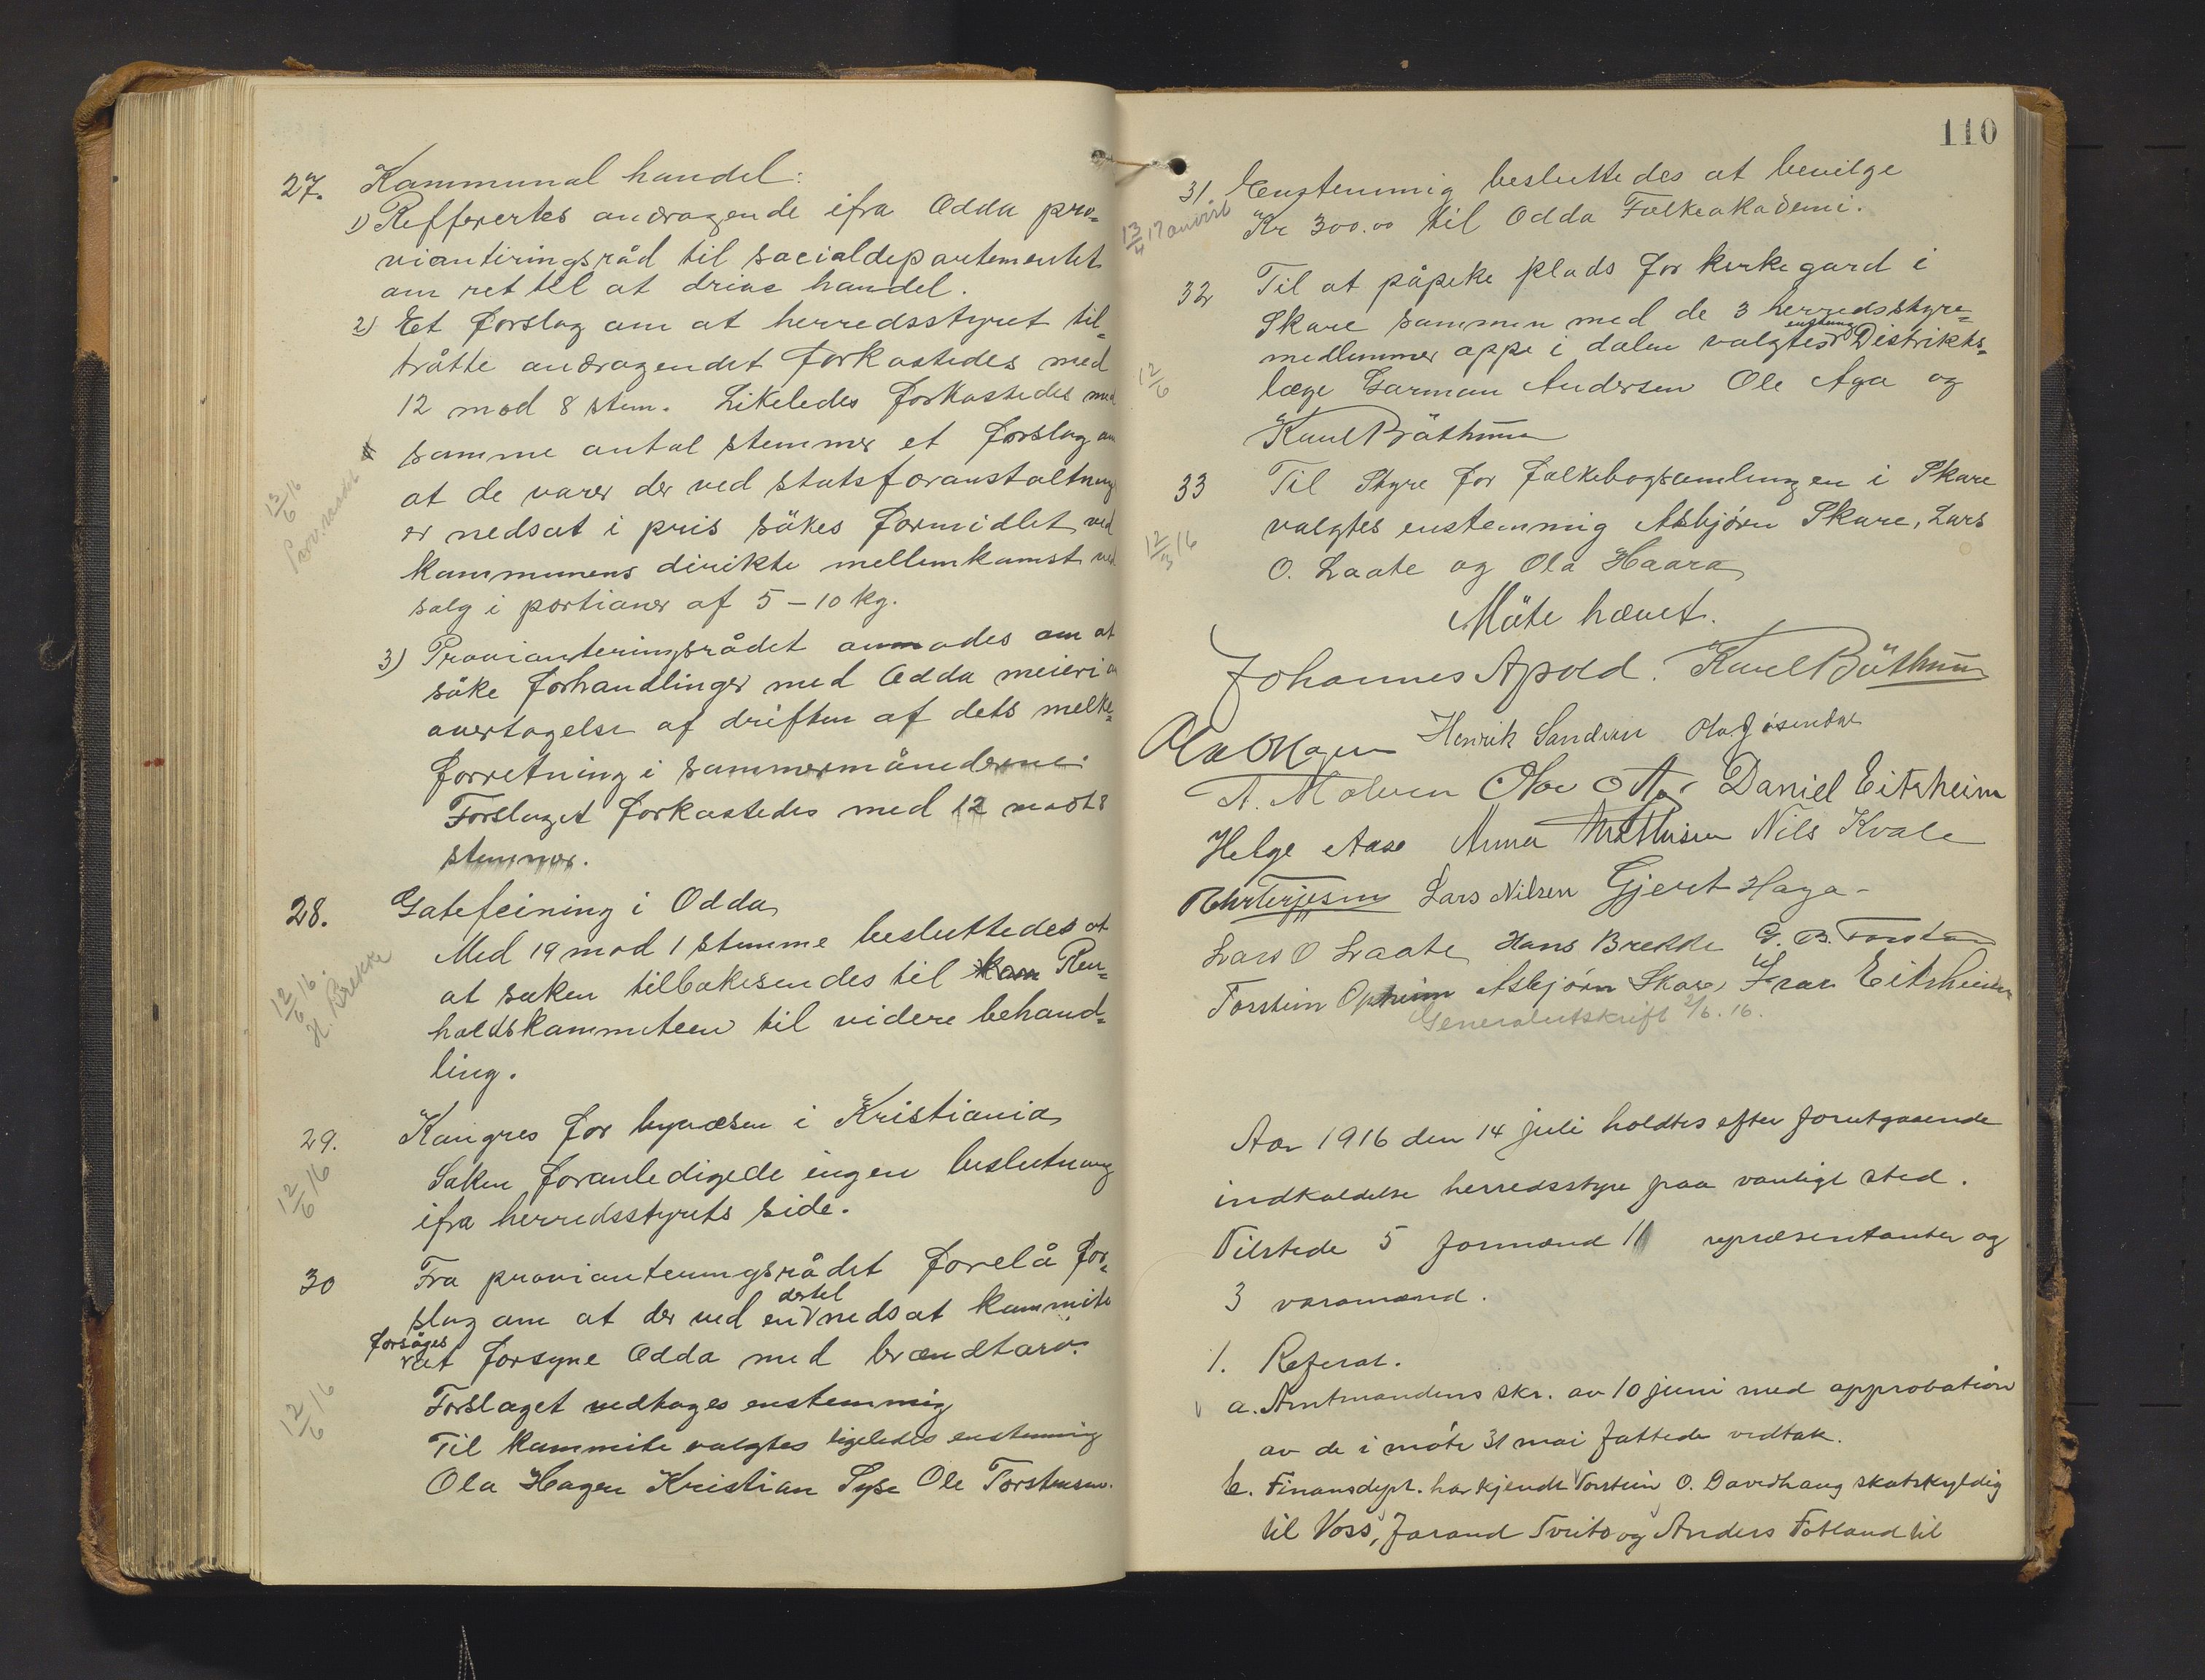 27. Kommunal handel:
1) Refferertes andragende ifra Odda pro-
viantiringsråd til socialdepartementet
om ret til at drive handel.
2) Et forslag om at herredsstyret til-
tråtte andragendet forkastedes med
12 mod 8 stem. Likeledes forkastedes med
samme antal stemmer et forslag om
at de varer der ved statsforanstaltning
er nedsat i pris søkes formidlet ved
kommunens dirikte mellemkomst ved
salg i portioner af 5 – 10 kg.
12/6 16
Prov.raadet
3) Provianteringsrådet anmodes om at
søke forhandlinger med Odda meieri om
overtagelse af driften af dets melke-
forretning i sommermånederne.
Forslaget forkastedes med 12 mod 8
stemmer.
28. Gatefeining i Odda
Med 19 mod 1 stemme besluttedes at
at saken tilbakesendes til Ren-
holdskommiteen til videre behand-
ling.
12/6 16.
H. Brekke
29. Kongres for byvæsen i Kristiania
Saken foranledigede ingen beslutning
ifra herredsstyrets side.
12/6 16
30 Fra provianteringsrådet forelå for-
slag om at der ved en dertil nedsat kommite
forsøges at forsyne Odda med brændtorv.
Forslaget vedtoges enstemmig
Til kommite valgtes ligeledes enstemmig
Ola Hagen Kristian Syse Ole Torstensen.
12/6 16
110
31 Enstemmig besluttedes at bevilge
Kr 300.00 til Odda Folkeakademi.
13/4 17 anvist
32 Til at påpeke plads for kirkegard i
Skare sammen med de 3 herredsstyre-
medlemmer oppe i dalen valgtes enstemmig Distrikts-
læge Garman Andersen Ole Aga og
Karl Bäthum
12/6
33 Til Styre for folkebogsamlingen i Skare
valgtes enstemmig Asbjørn Skare, Lars
O. Laate og Ola Haara
12/3 16
Møte hævet.
Johannes Apold. Karl Bäthum
Ola Hagen Henrik Sandven Ola Jøsendal
A. Molven Olav Aga Daniel Eitrheim
Helge Aase Anna Mathisen Nils Kvale
Terjesen Lars Nilsen Gjert Haga-
Lars O Laate Hans Brekke G. B.
Torstein Opheim Asbjørn Skare Ivar Eitrheim
Generalutskrift 2/6. 16.
Aar 1916 den 14 juli holdtes efter forutgaaende
indkaldelse herredsstyre paa vanligt sted.
Tilstede 5 formænd 11 repræsentanter og
3 varamænd.
1. Referat.
a. Amtmandens skr. av 10 juni med approbation
av de i møte 31 mai fattede vedtak.
b. Finansdept. har kjendt Torstein O. Davidhaug skatskyldig
til Voss, Jarand Tveito og Anders Fotland til